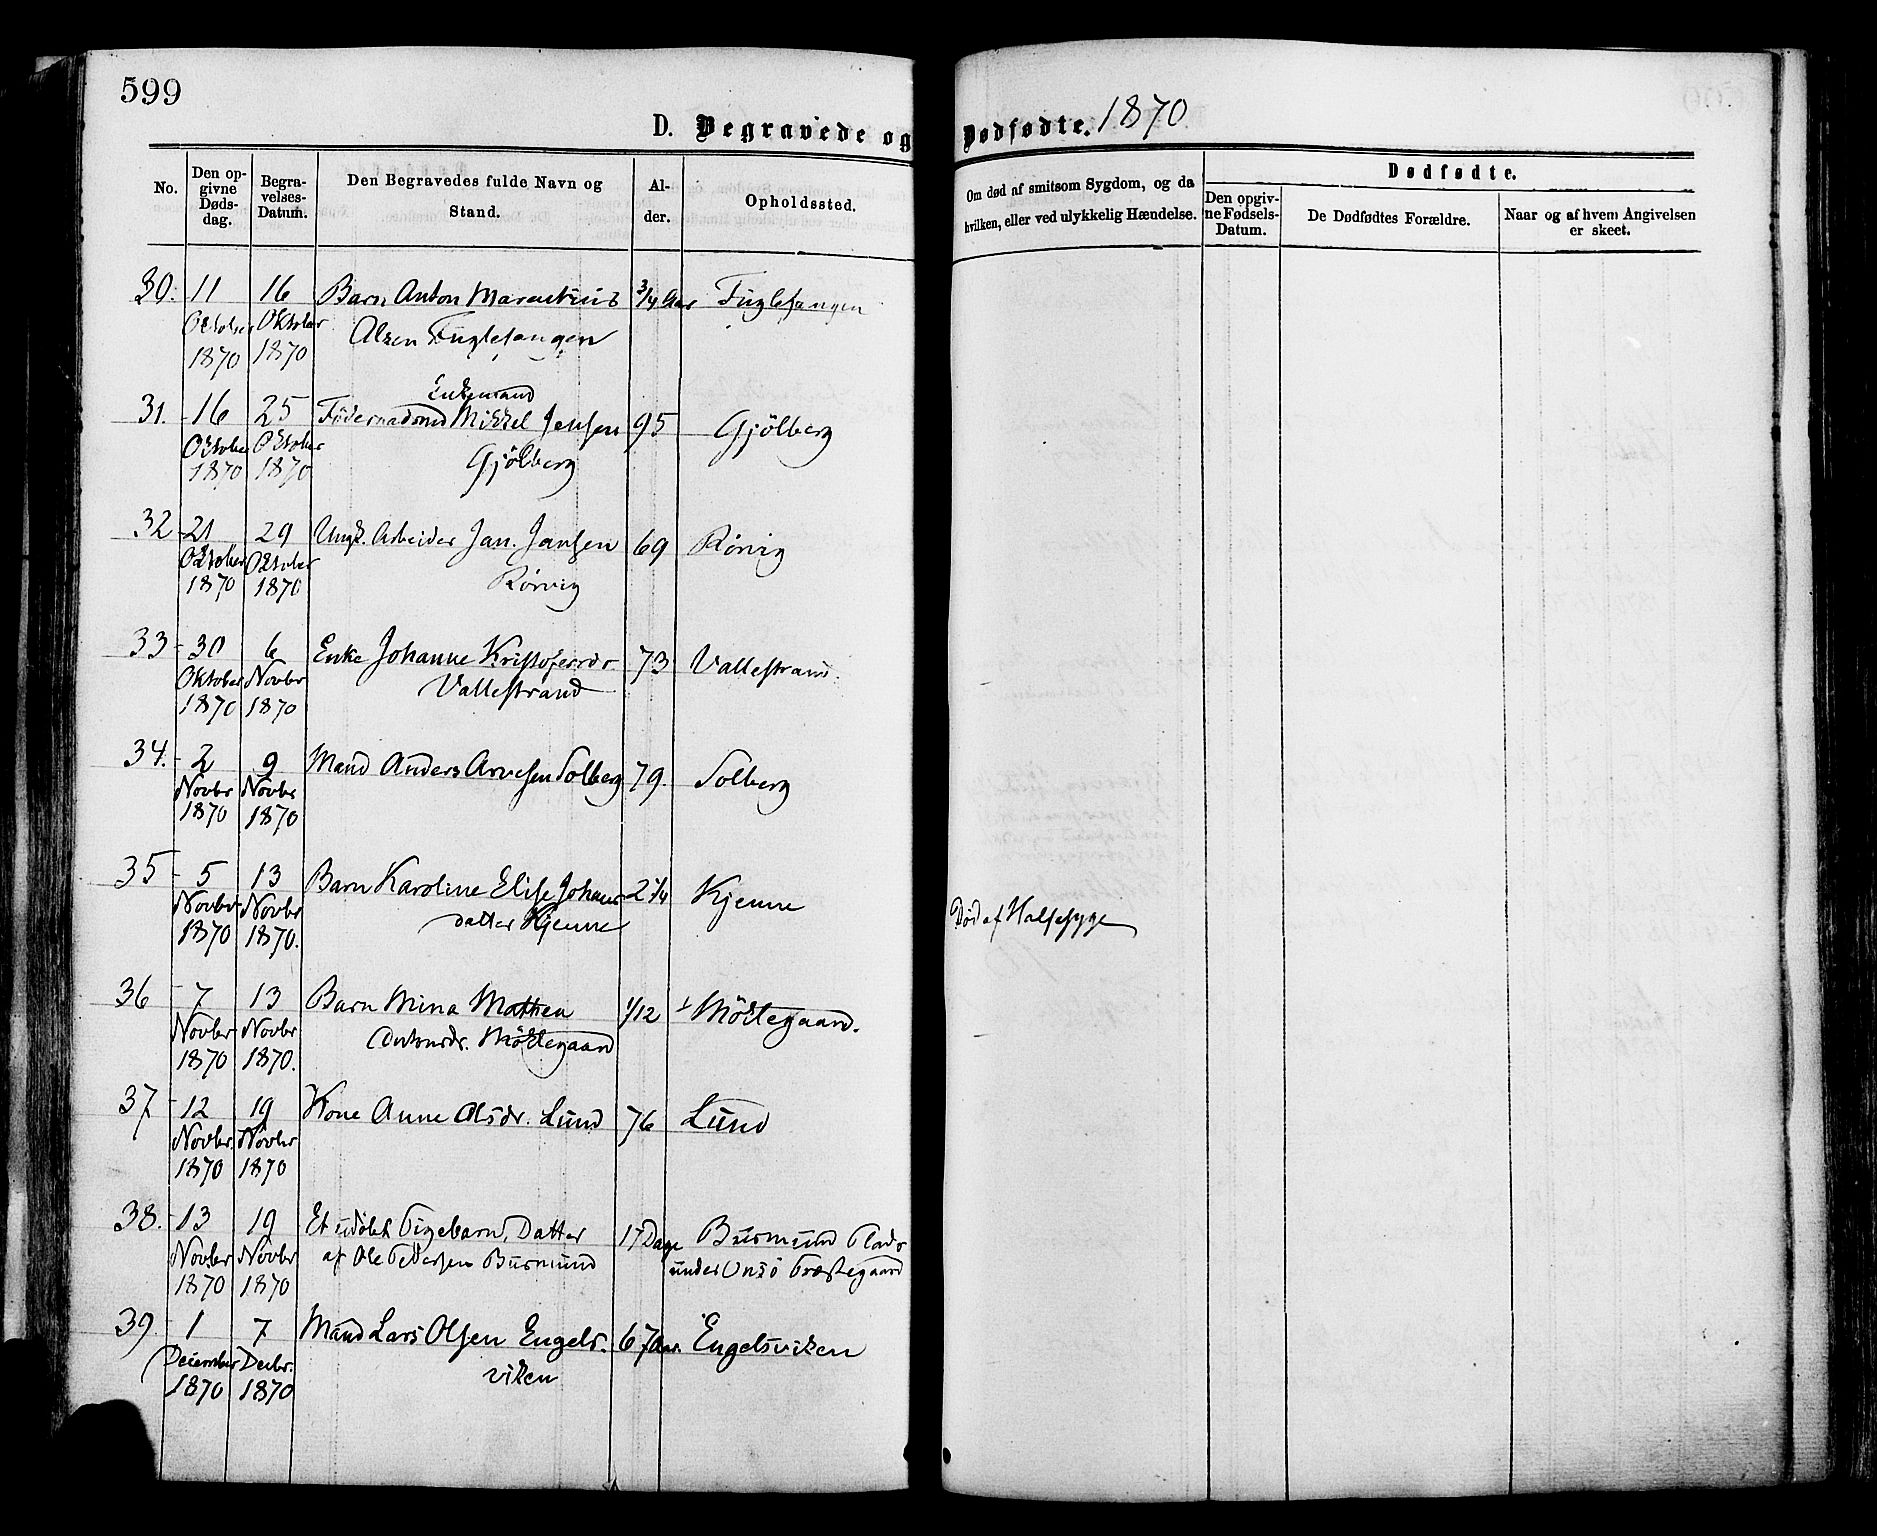 599
D. Begravede og Dødfødte. 1870
No.
Den op-
givne
Døds-
dag.
Begra-
velses-
Datum.
Den Begravedes fulde Navn og
Stand.
Al-
der.
Opholdssted.
Om død af smitsom Sygdom, og da
hvilken, eller ved ulykkelig Hændelse.
Dødfødte.
Den opgiv-
ne Fødsels-
Datum.
De Dødfødtes Forældre.
Naar og af hvem Angivelsen
er skeet.
30. 11 16 Barn Anton Marentius 3/4 Aar Fuglefangen
Oktober Oktober Olsen Fuglefangen
1870 1870
Enkemand
31. 16 25 Föderaadsmd Mikkel Jensen 95 Gjölberg
Oktober Oktober Gjölberg
1870 1870
32 21 29 Ungk. Arbeider Jan. Jansen 69 Rörvig
Oktober Oktober Rörvig
1870 1870
33 30 6 Enke Johanne Kristofersdr. 73 Vallestrand.
Oktober Novbr Vallestrand
1870 1870
34. 2 9 Mand Anders Arvesen Solberg 79. Solberg
Novbr Novbr
1870 1870
35 5 13 Barn Karoline Elise Johans 2 1/4 Kjenne Död af Halsesyge
Novbr Novbr datter Kjenne
1870 1870.
36 7 13 Barn Mina Mathea 1/12 Möklegaard.
Novbr Novbr Möklegaard
1870 1870.
37 12 19 Kone Anne Olsdr. Lund 76 Lund
Novbr. Novbr
1870 1870
38. 13 19 Et udöbt Pigebarn, Datter 17 Dage Busmund Plads
Novbr Novbr af Ole Pedersen Busmund under Onsö Præstegaard
1870 1870
39. 1 7 Mand Lars Olsen Engels- 67 Aar. Engelsviken
December Decbr. viken
1870 1870